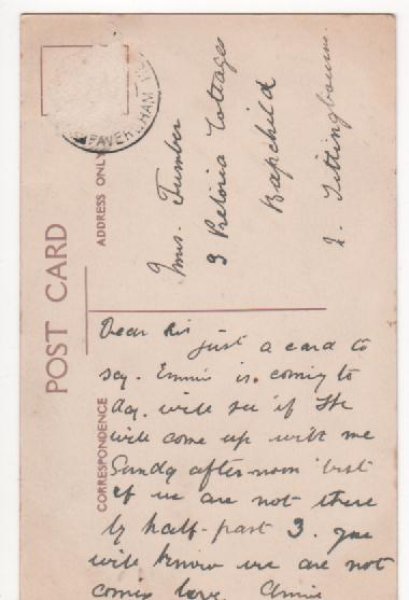 POST CARD
ADDRESS ONLY
CORRESPONDENCE
FAVERSHAM
Mrs. Tumber
3 Pretoria Cottages
Bapchild
Sittingbourne
Dear Sis
just a card to
say. Emmie is. coming to
day. will see if she
will come up with me
Sunday after-noon but
if we are not there
by half-past 3. you
will know we are not
coming love. Annie